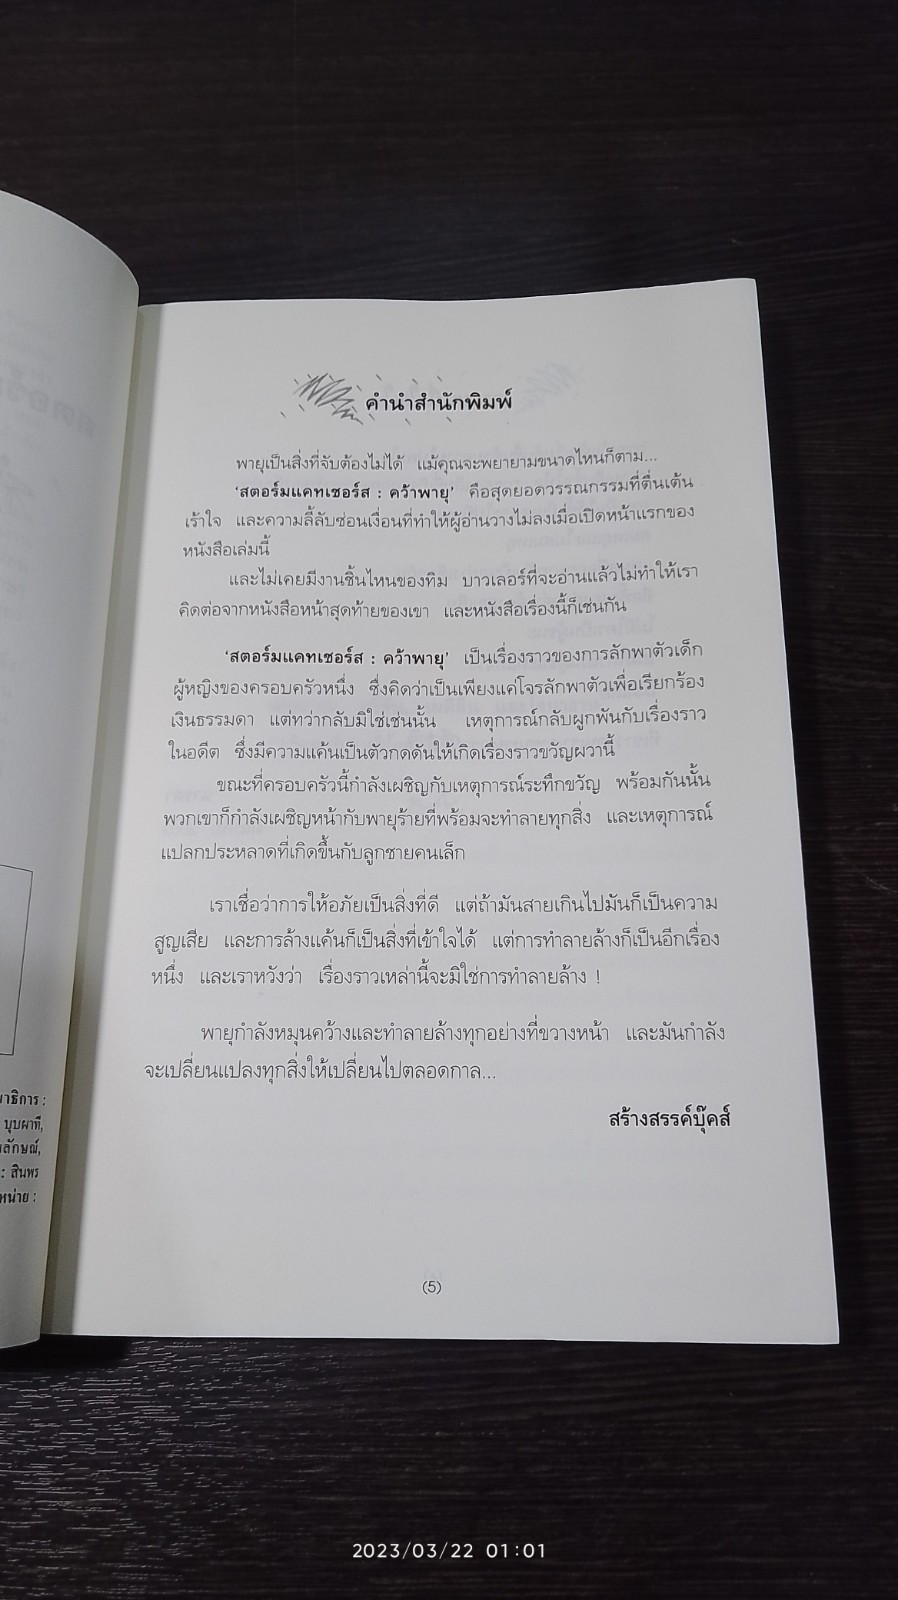 คำนำสำนักพิมพ์
พายุเป็นสิ่งที่จับต้องไม่ได้ แม้คุณจะพยายามขนาดไหนก็ตาม...
‘สตอร์มแคทเชอร์ส : คว้าพายุ’ คือสุดยอดวรรณกรรมที่ตื่นเต้น
เร้าใจ และความลี้ลับซ่อนเงื่อนที่ทำให้ผู้อ่านวางไม่ลงเมื่อเปิดหน้าแรกของ
หนังสือเล่มนี้
และไม่เคยมีงานชิ้นไหนของทิม บาวเลอร์ที่จะอ่านแล้วไม่ทำให้เรา
คิดต่อจากหนังสือหน้าสุดท้ายของเขา และหนังสือเรื่องนี้ก็เช่นกัน
‘สตอร์มแคทเชอร์ส : คว้าพายุ’ เป็นเรื่องราวของการลักพาตัวเด็ก
ผู้หญิงของครอบครัวหนึ่ง ซึ่งคิดว่าเป็นเพียงแค่โจรลักพาตัวเพื่อเรียกร้อง
เงินธรรมดา แต่ทว่ากลับมิใช่เช่นนั้น เหตุการณ์กลับผูกพันกับเรื่องราว
ในอดีต ซึ่งมีความแค้นเป็นตัวกดดันให้เกิดเรื่องราวขวัญผวานี้
ขณะที่ครอบครัวนี้กำลังเผชิญกับเหตุการณ์ระทึกขวัญ พร้อมกันนั้น
พวกเขาก็กำลังเผชิญหน้ากับพายุร้ายที่พร้อมจะทำลายทุกสิ่ง และเหตุการณ์
แปลกประหลาดที่เกิดขึ้นกับลูกชายคนเล็ก
เราเชื่อว่าการให้อภัยเป็นสิ่งที่ดี แต่ถ้ามันสายเกินไปมันก็เป็นความ
สูญเสีย และการล้างแค้นก็เป็นสิ่งที่เข้าใจได้ แต่การทำลายล้างก็เป็นอีกเรื่อง
หนึ่ง และเราหวังว่า เรื่องราวเหล่านี้จะมิใช่การทำลายล้าง !
พายุกำลังหมุนคว้างและทำลายล้างทุกอย่างที่ขวางหน้า และมันกำลัง
จะเปลี่ยนแปลงทุกสิ่งให้เปลี่ยนไปตลอดกาล...
สร้างสรรค์บุ๊คส์
(5)
าธิการ :
บุบผาที,
ลักษณ์,
: สินพร
หน่าย :
2023/03/22 01:01